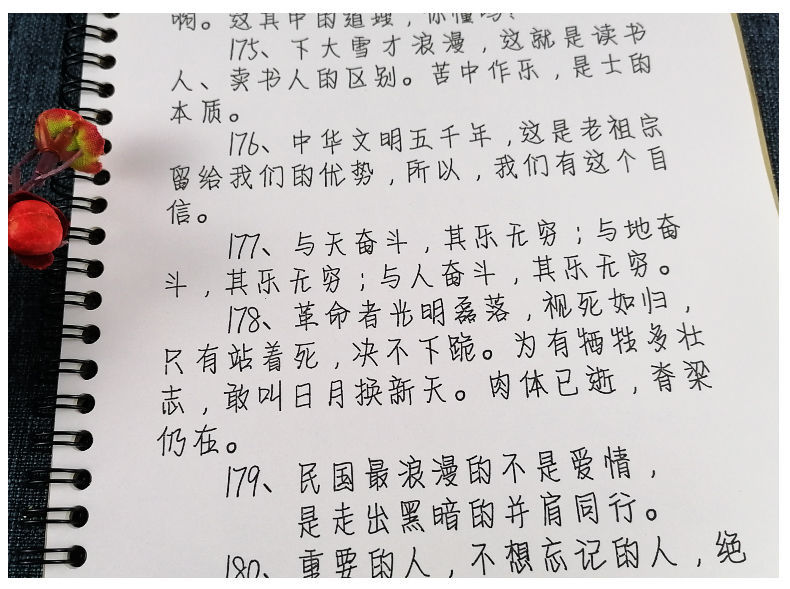 啊。这其中的道理，你懂吗？
175、下大雪才浪漫，这就是读书
人、卖书人的区别。苦中作乐，是士的
本质。
176、中华文明五千年，这是老祖宗
留给我们的优势，所以，我们有这个自
信。
177、与天奋斗，其乐无穷；与地奋
斗，其乐无穷；与人奋斗，其乐无穷。
178、革命者光明磊落，视死如归，
只有站着死，决不下跪。为有牺牲多壮
志，敢叫日月换新天。肉体已逝，脊梁
仍在。
179、民国最浪漫的不是爱情，
是走出黑暗的并肩同行。
180、重要的人，不想忘记的人，绝